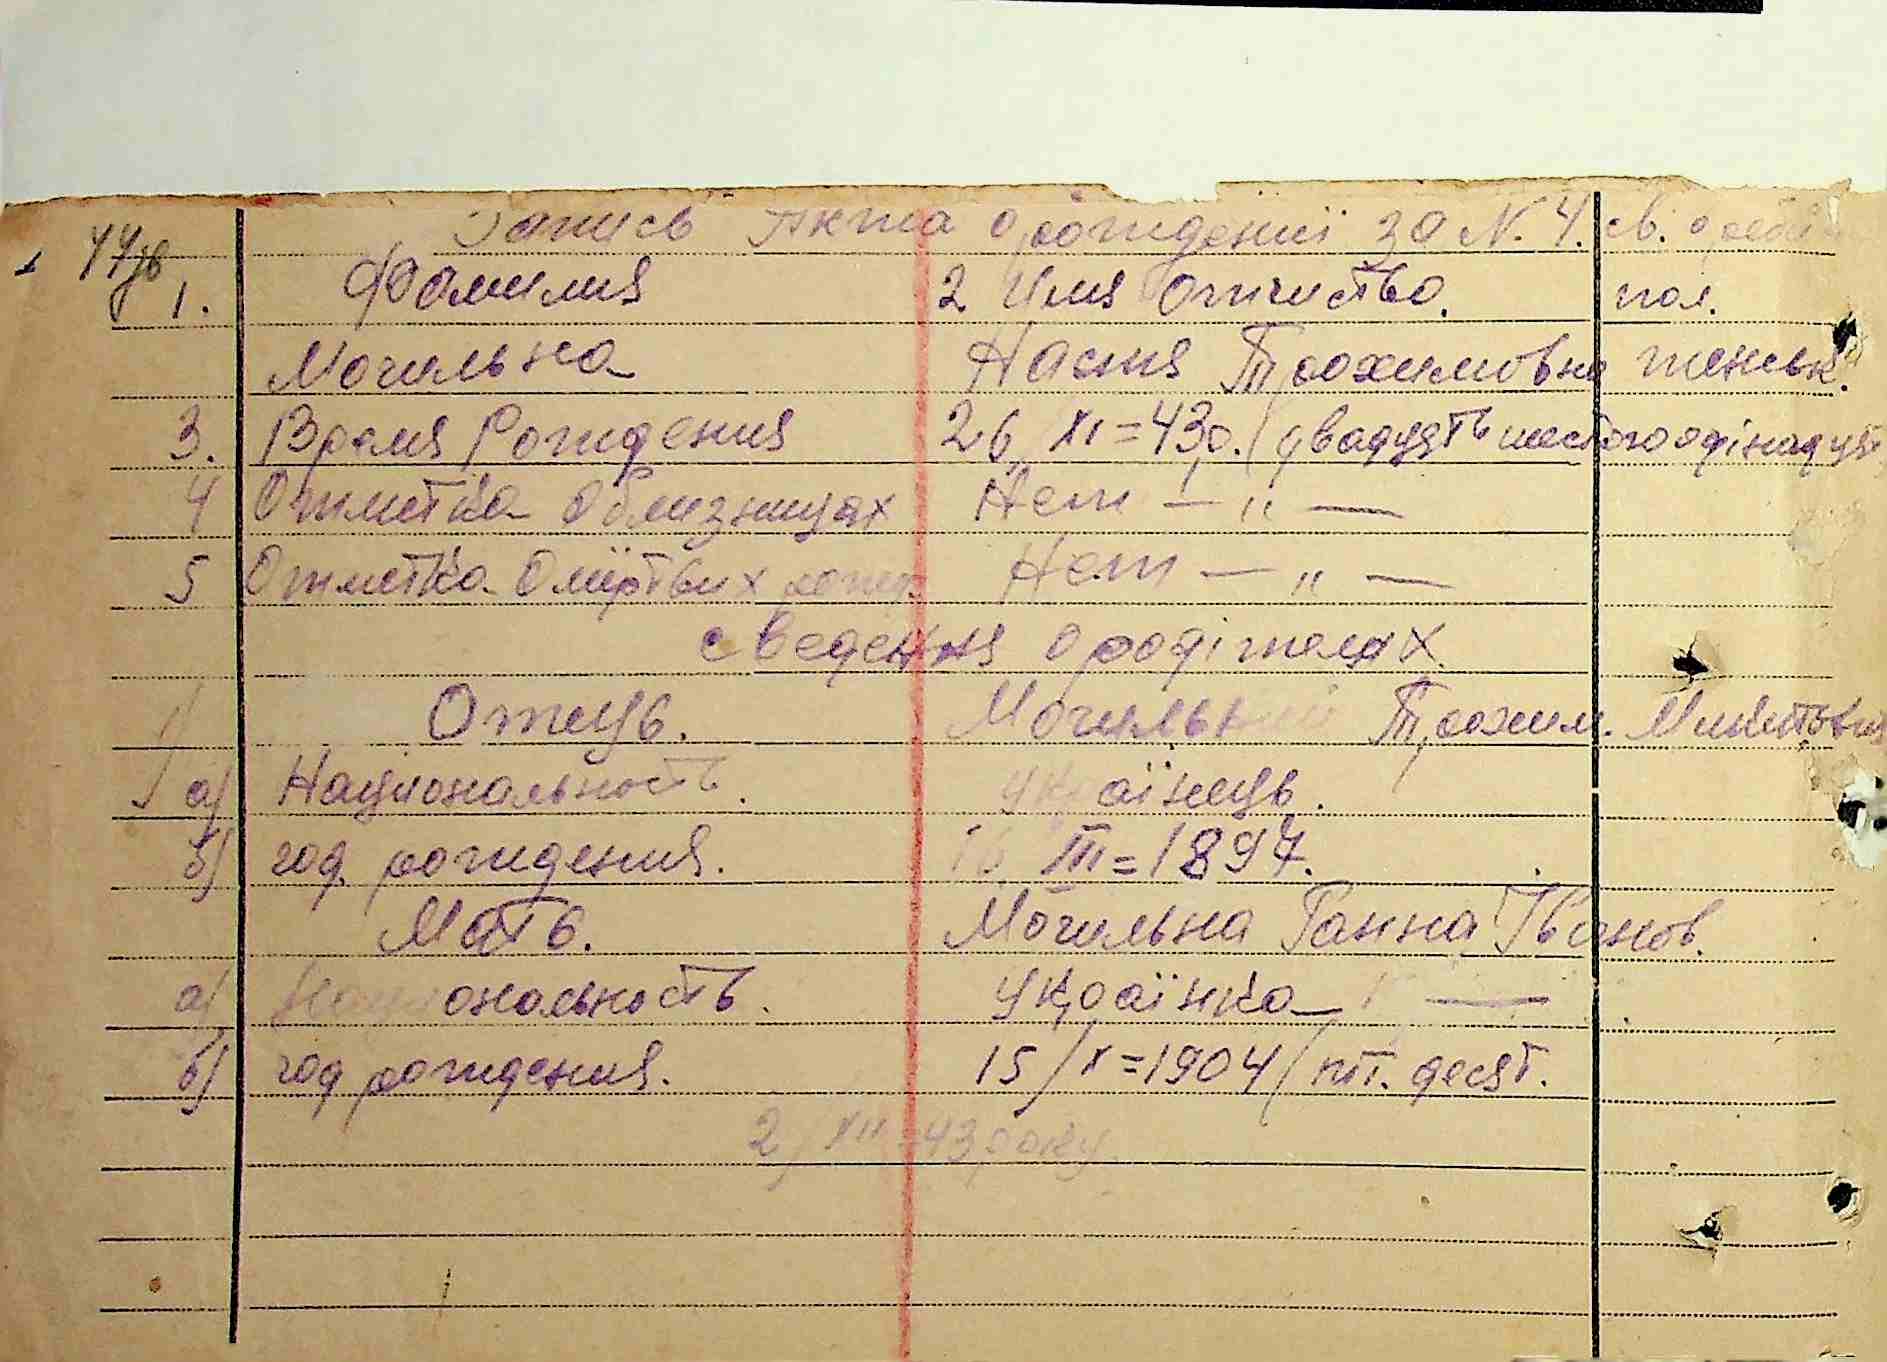 Запись Акта о рождении за N. 4. св. о ребён
44зв
1. Фамилия 2 Имя Отчиство. пол.
Могильна Настя Трохимовна женськ.
3. Время Рождения 26 XI=43р. (двадцять шестого одінадцят
4 Отметка о близницах Нет — " —
5 Отметка о мїртвих рожд. Нет — " —
сведення о родітелях
Отець. Могильний Трохим. Микитович
а) Национальность. Українець.
б) год рождения. III=1897.
Мать. Могильна Ганна Іванов.
а) Национальность. Українка —
б) год рождения. 15/X=1904 (пят. десят.
2/XII=43 року.